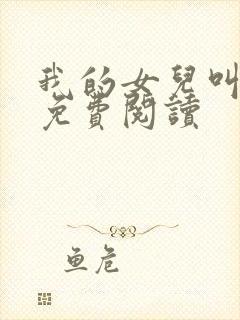 我的女兒叫
免費閱讀
鱼危